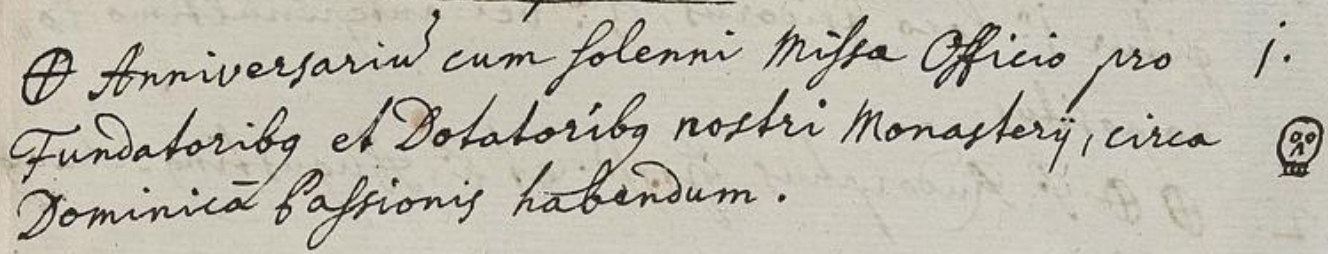 ⊕ Anniversariū cum solenni Missa Officio pro j.
Fundatoribꝯ et Dotatoribꝯ nostri Monasterÿ, circa
Dominicā Passionis habendum.